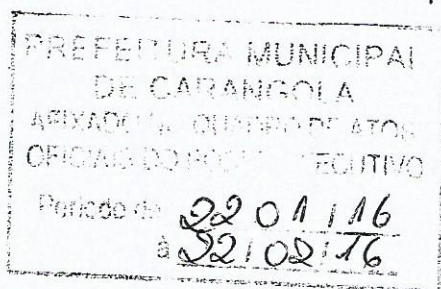 PREFEITURA MUNICIPAL
DE CARANGOLA
AFIXADO QUADRO DE ATOS
OFICIAIS DO PODER EXECUTIVO
Período de 22 01 / 16
à 22 / 02 / 16